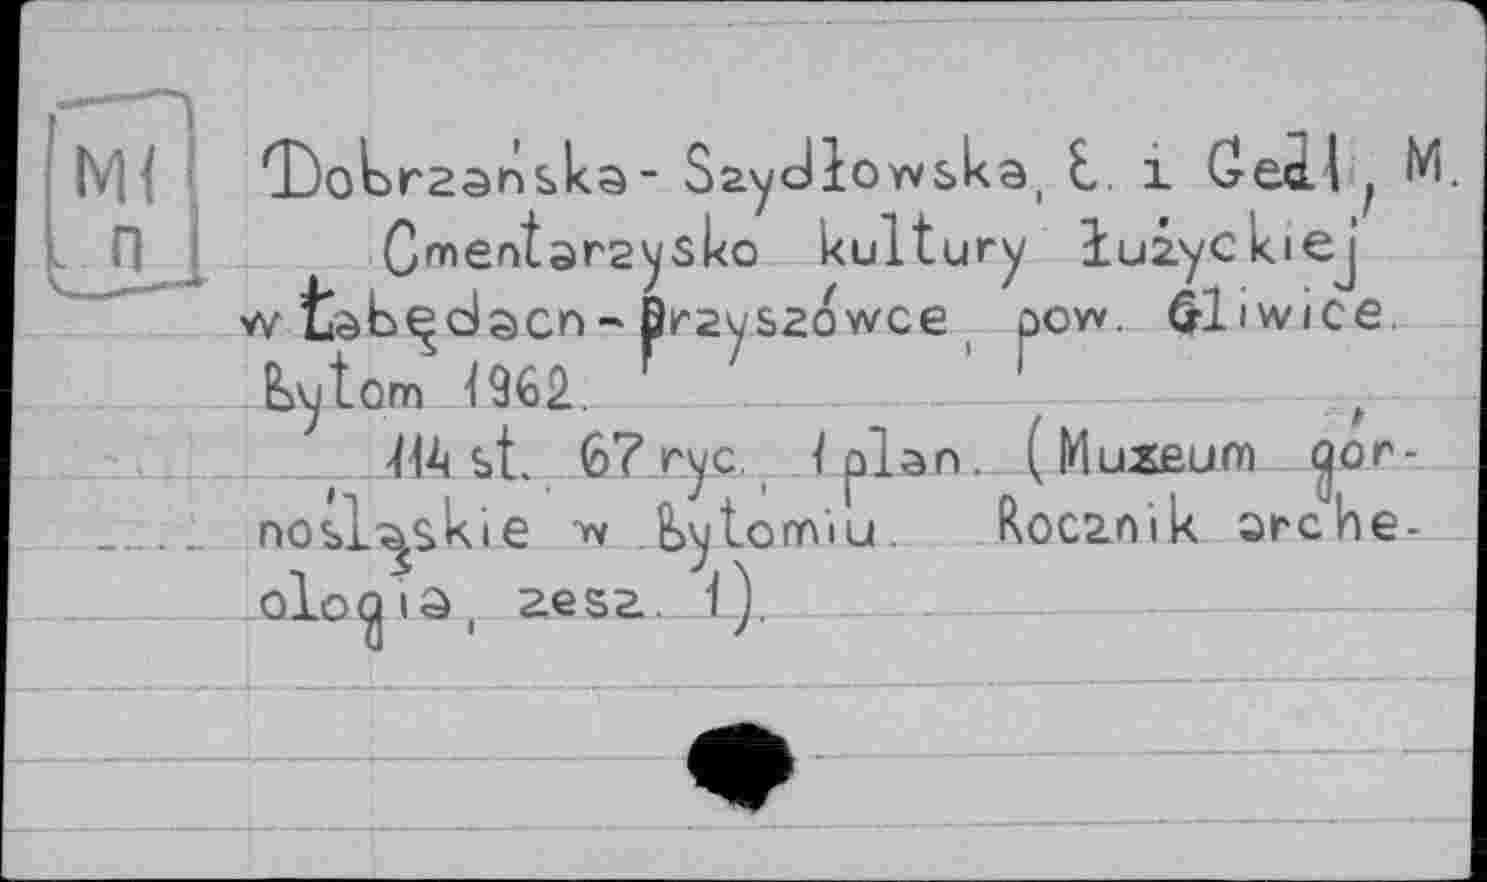 М1
п
Dobrzańska- Szydłowska, E. i Gedl, M.
Cmentarzysko kultury łużyckiej
w Łabędacn - Przyszówce, pow. Gliwice.
Bytom 1962.
114 st. 67 ryc., 1 plan. (Muzeum gór-
nośląskie w Bytomiu. Rocznik arche-
ologia, zesz. 1).